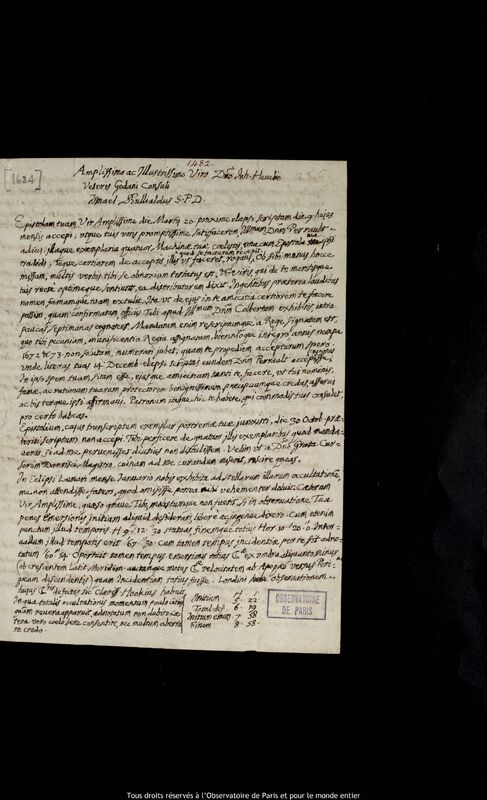 1482.
[1684]
236
Amplissimo ac Illustrissimo Viro Dno Joh. Hevelio
Veteris Gedani Consuli
Ismael Bullialdus S.P.D.
Epistolam tuam Vir Amplissime die Martij 20. proxime elapsi scriptam die 9 hujus
mensis accepi; utque tuis votis promptissime satisfacerem Illmum Dnm Perrault
adii, illaque exemplaria quatuor Machinæ tuæ cœlestis, una cum Epistola tua ipsi
tradidi; Teque certiorem de acceptis illis ut faceret, rogavi,
quod se facturum recepit. Ob sibi munus hocce
missum, multis verbis tibi se obnoxium testatus est. Vt viri, qui de te meritisque
tuis recte optimeque sentiunt, ea distribuantur dixit. Ingentibus præterea laudibus
nomen famamque tuam extulit. Ita ut de ejus in te amicitia certiorem te facere
possim, quam confirmatum officiis Tibi apud Illmum Dnm Colbertum exhibitis, intra
paucas septimanas cognosces. Mandatum enim rescriptumque a Rege signatum est,
quo tibi pecuniam, munificentia Regia assignatam, biennioque integro annis nempe
1672 & 73. non solutam, numerari jubet; quam te propediem accepturum, spero.
Vnde literas tuas 14 Decemb. elapsi scriptas eundem Dnm Perrault accepisse
In ipso spem tuam sitam esse, ejusque amicitiam tanti te facere, ut tui nominis,
famæ, ac rationum tuarum protectorem benignissimum, præcipuumque credas, asserui
ac bis terque ipsi affirmavi. Patronum itaque hic te habere, qui commodis tuis consulet,
pro certo habeas.
Epistolium, cujus transcriptum exemplar postremæ tuæ junxisti, die 30 Octob. præ-
teriti scriptum non accepi. Tibi perficere de quatuor illis exemplaribus quod manda-
veris, si ad me pervenisset diutius non distulissem. Velim ut a Dno Grata Cur-
sorum Magistro, cuinam ad me curandum miserit, rescire queas.
In Eclipsi Lunari mense Januario nobis exhibita ad stellarum illarum occultationem,
me non attendisse fateor, quod omisisse postea mihi vehementer doluit. Cæterum
Vir Amplissime, quæso grave Tibi, molestumque non fuerit, si in observatione Tua
penes Emersionis initium aliquid desiderari, libere ac ingenue dixero. Cum etenim
punctum illud temporis H 9. 12. 30. statuas finemque totius Hor. 10. 20. 0. Inter-
vallum illud temporis erit 67. 30. cum tamen tempus incidentiæ per te sit adno-
tatum 60. 54. Oportuit tamen tempus emersionis totius ex umbra aliquanto minus
(ob crescentem Latit. Meridion. auctamque motus velocitatem ab Apogæo versus Peri-
gæum descendentis) quam Incidentiam totius fuisse. Londini observationem
hujus defectus sic Clarss. Hookius habuit
In qua totalis occultationis momentum paulo citius
quam revera apparuit, adnotatum non dubito. Cæ-
tera vero cœlo bene consentire, nec multum aberra-
re credo.
H. I.
Initium 5. 22.
Total. def. 6. 19
Initium emer. 7. 58
Finem 8. 58.
OBSERVATOIRE
DE PARIS
Tous droits réservés à l'Observatoire de Paris et pour le monde entier